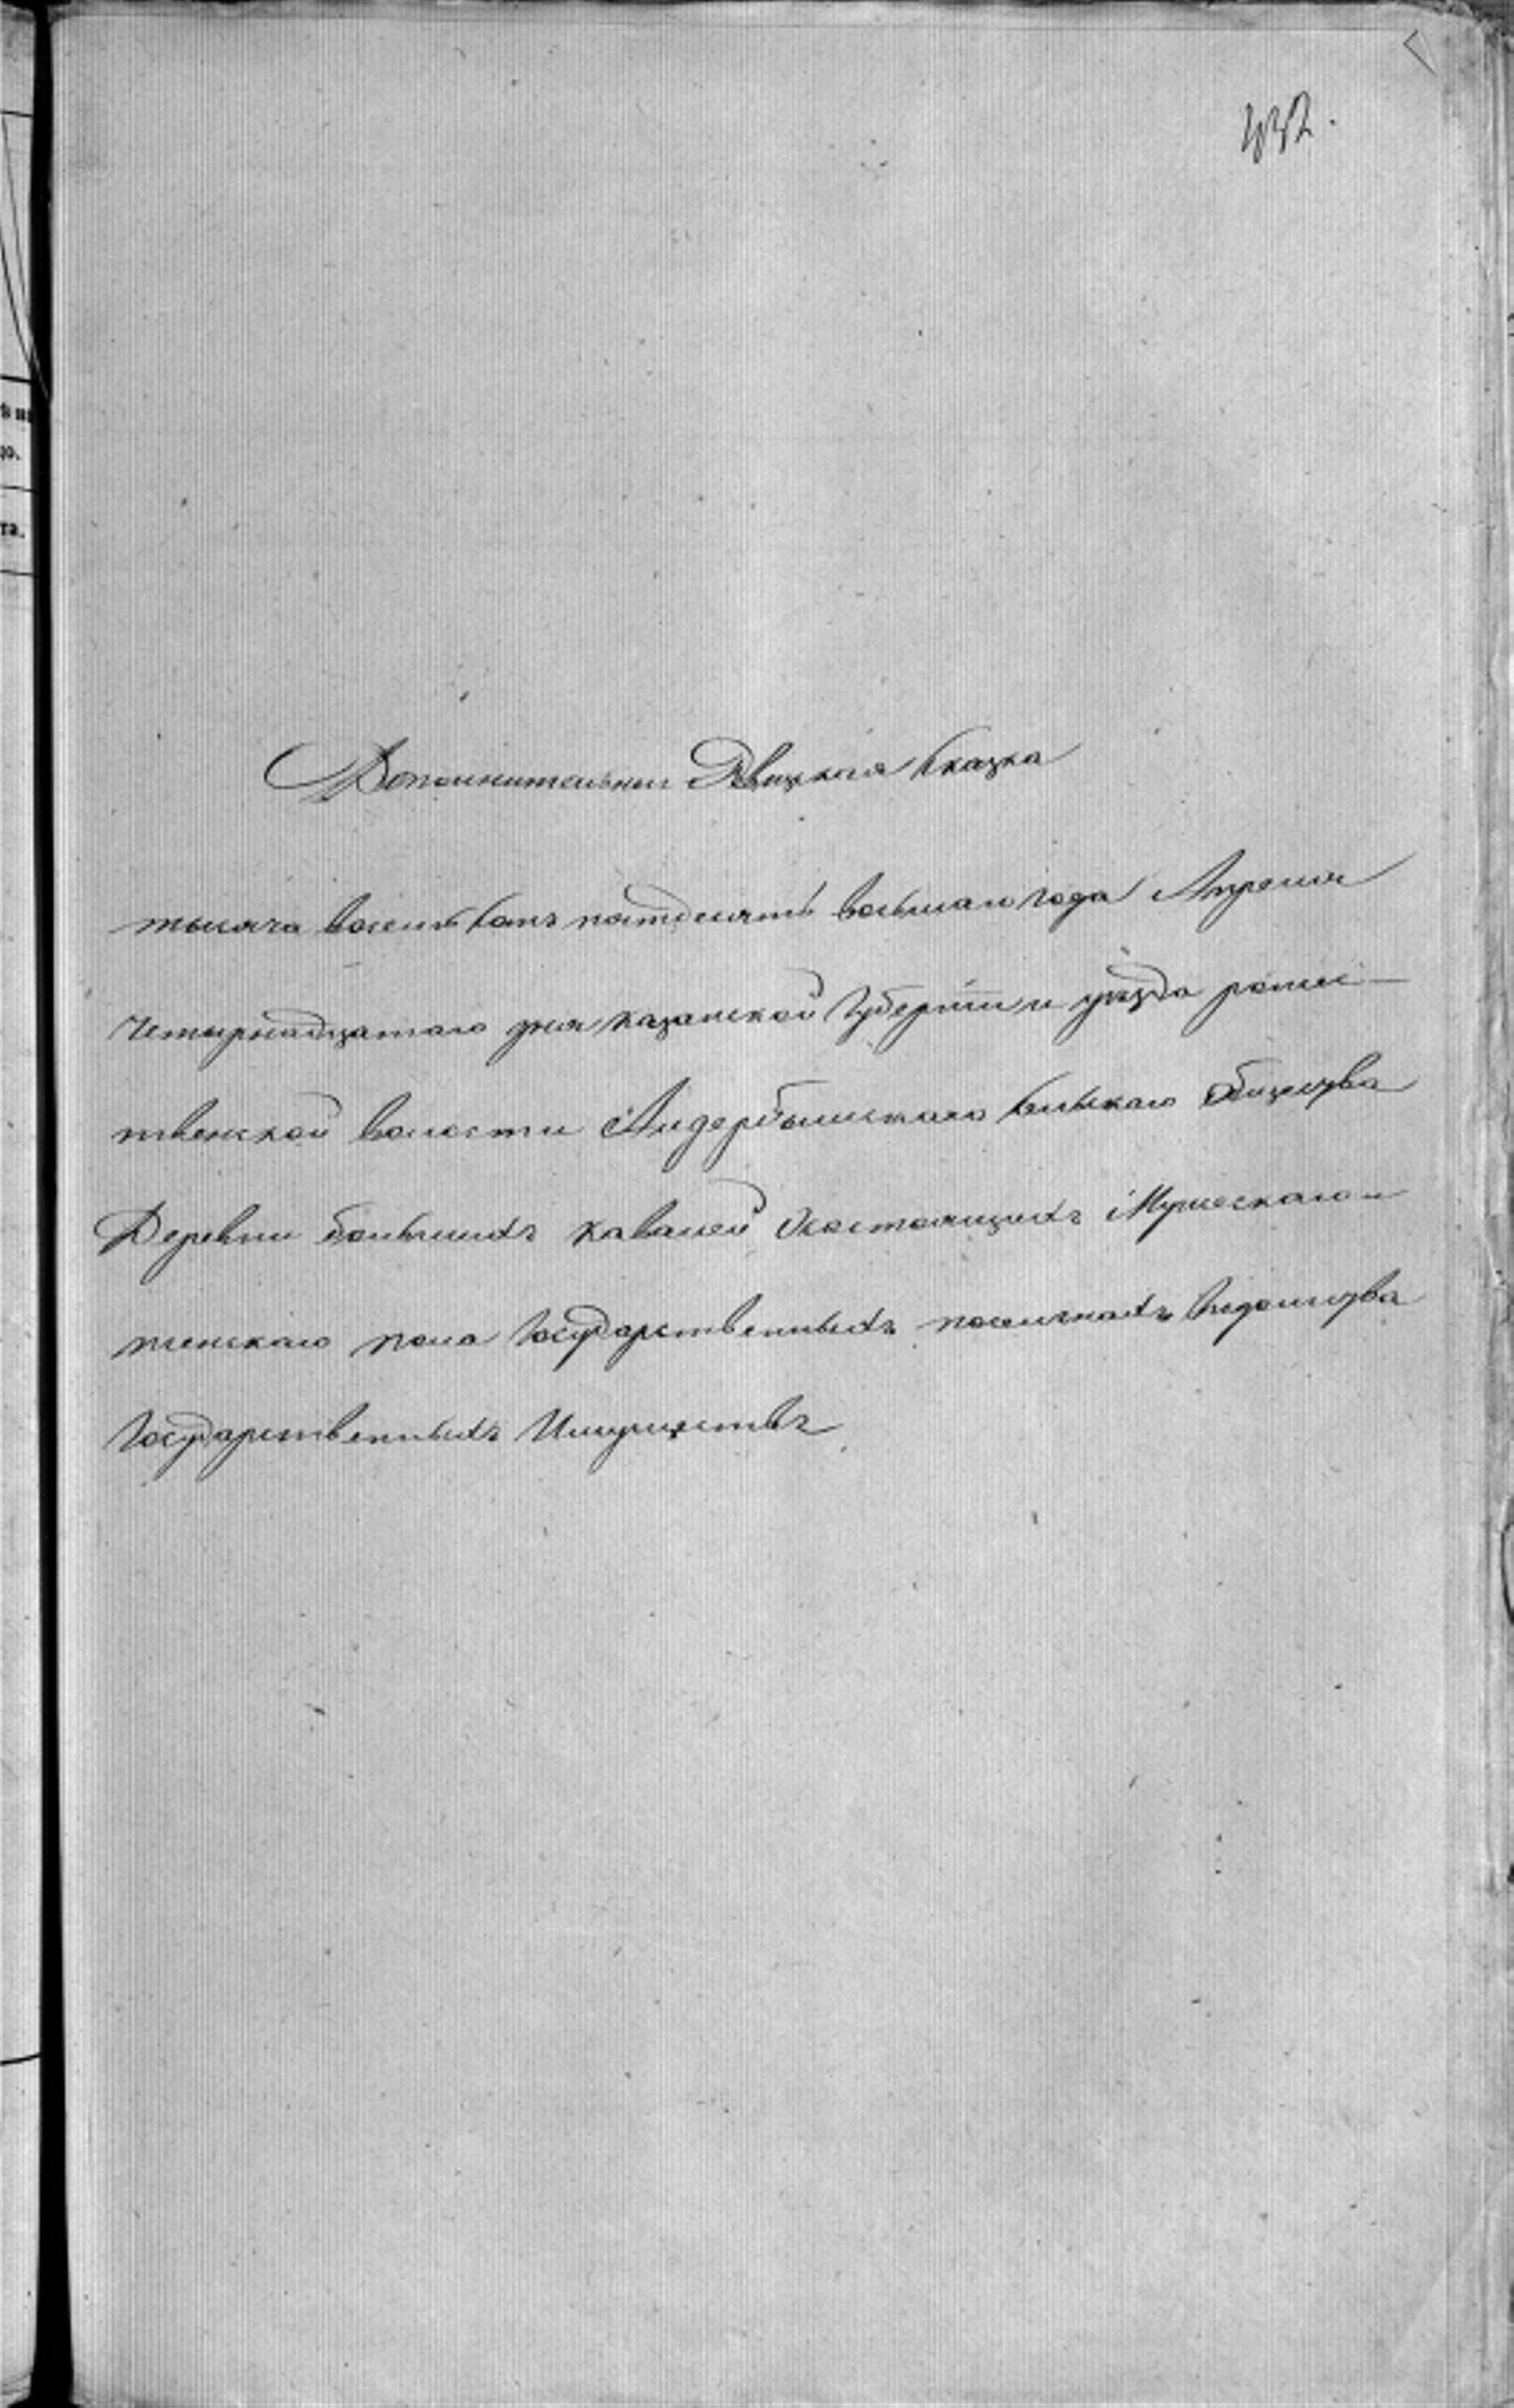 432.
Дополнительная Ревизская Сказка
тысяча восемь сотъ пятдесятъ восьмаго года Апреля
Четырнадцатаго дня казанской Губерніи и уѣзда рожес-
твенской волости Айдербышскаго сельскаго Общества
Деревни большихъ кавалей Осостоящихъ Мужескаго и
женскаго пола Государственныхъ Ведомства
Государственныхъ Имуществъ